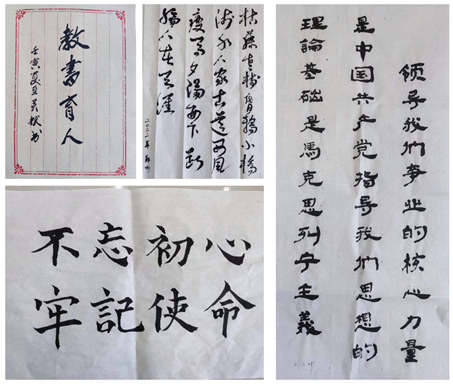 教書育人
壬寅夏至
枯藤老树昏鸦小橋
流水人家古道西風
瘦馬夕陽西下断
腸人在天涯
二〇二二年
不忘初心
牢記使命
领导我们事业的核心力量
是中国共产党指导我们思想的
理論基础是馬克思列宁主義